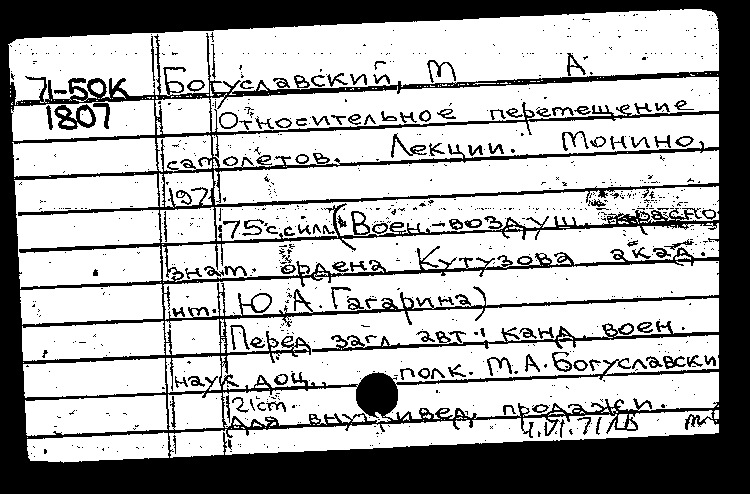 71-50К Богуславский, М А.
1807 Относительное перемещение
самолетов. Лекции. Монино,
1971.
75с.силл. (Воен.-воздуш. красно
знам. ордена Кутузова акад.
им. Ю.А. Гагарина)
Перед загл. авт.: канд. воен.
наук, доц., полк. М.А. Богуславски
21см.
Для внутривед. продажи.
4.VI.71